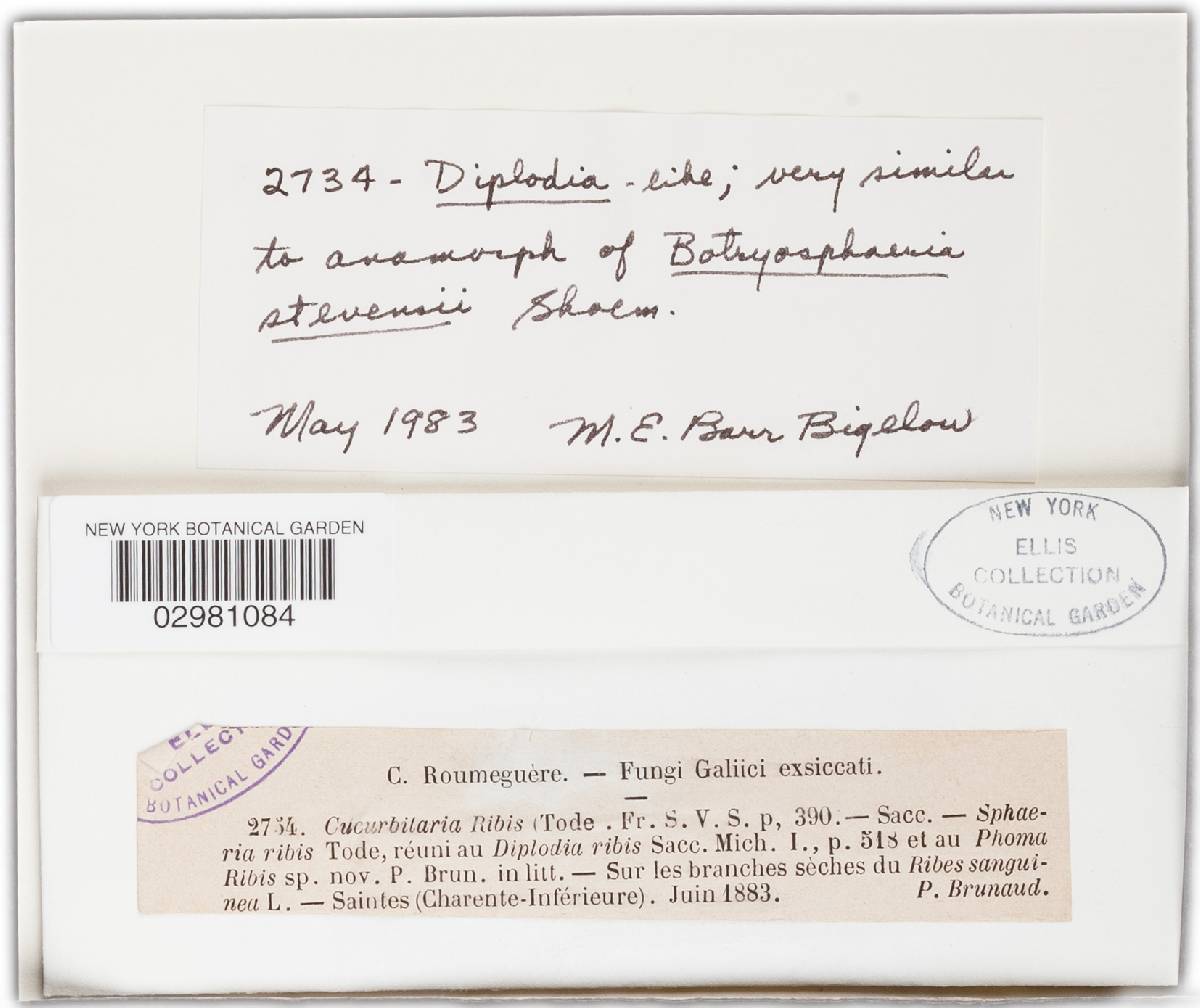 2734 - Diplodia - like; very similar
to anamorph of Botryosphaeria
stevensii Shoem.
May 1983 M.E. Barr Bigelow
NEW YORK BOTANICAL GARDEN
02981084
NEW YORK
ELLIS
COLLECTION
BOTANICAL GARDEN
COLLECT
BOTANICAL GARD
C. Roumeguère. — Fungi Galiici exsiccati.
2734. Cucurbitaria Ribis (Tode . Fr. S. V. S. p, 390. — Sacc. — Sphae-
ria ribis Tode, réuni au Diplodia ribis Sacc. Mich. I., p. 518 et au Phoma
Ribis sp. nov. P. Brun. in litt. — Sur les branches sèches du Ribes sangui-
nea L. — Saintes (Charente-Inférieure). Juin 1883. P. Brunaud.